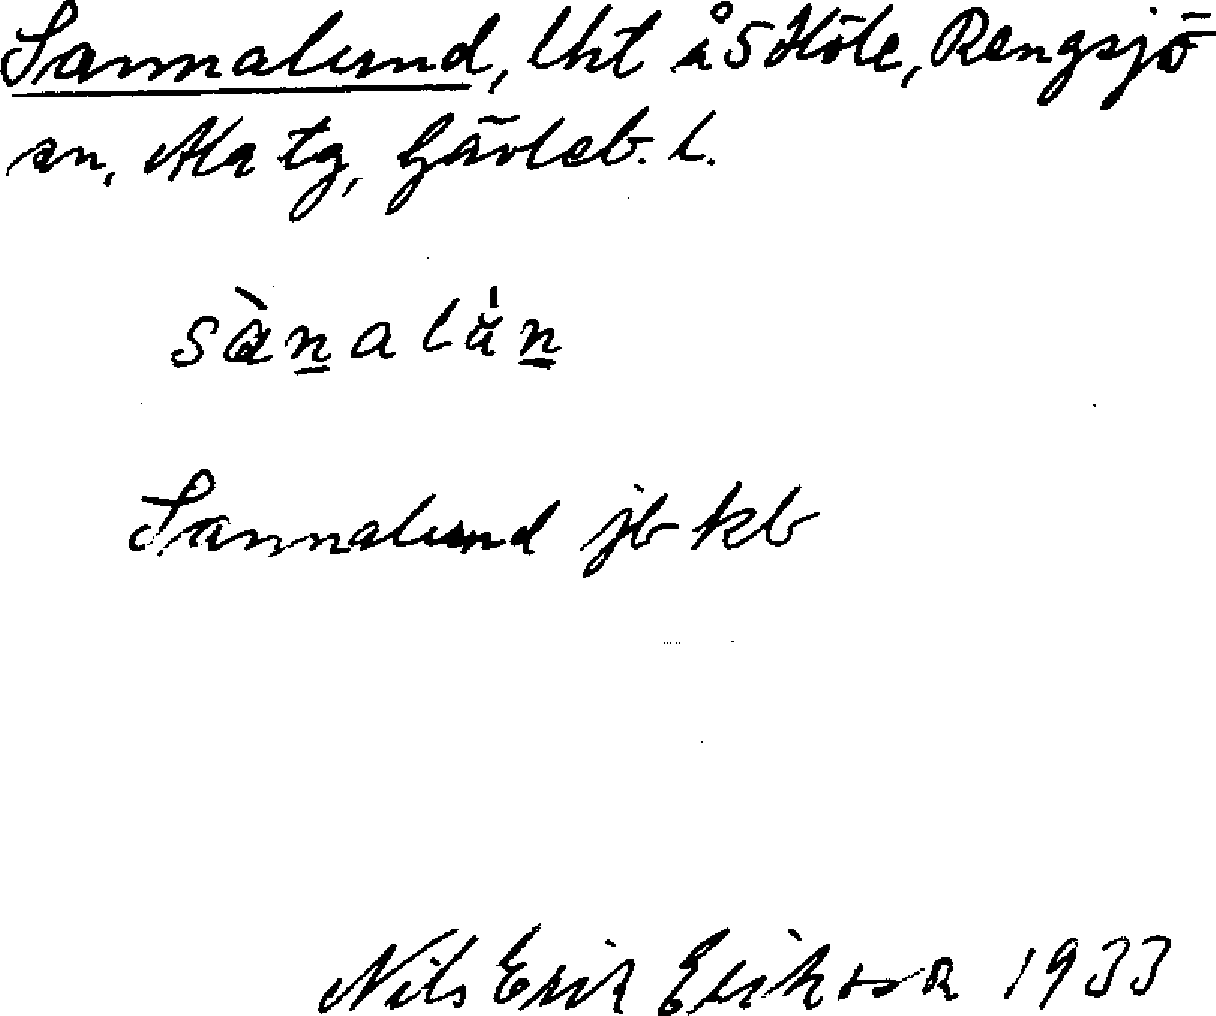 Sannalund, lht å S Höle, Rengsjö
sn, Ala tg, Gävleb. l.
sànalu̍n
Sannalund jb kb
Nils Erik Eriksson 1933